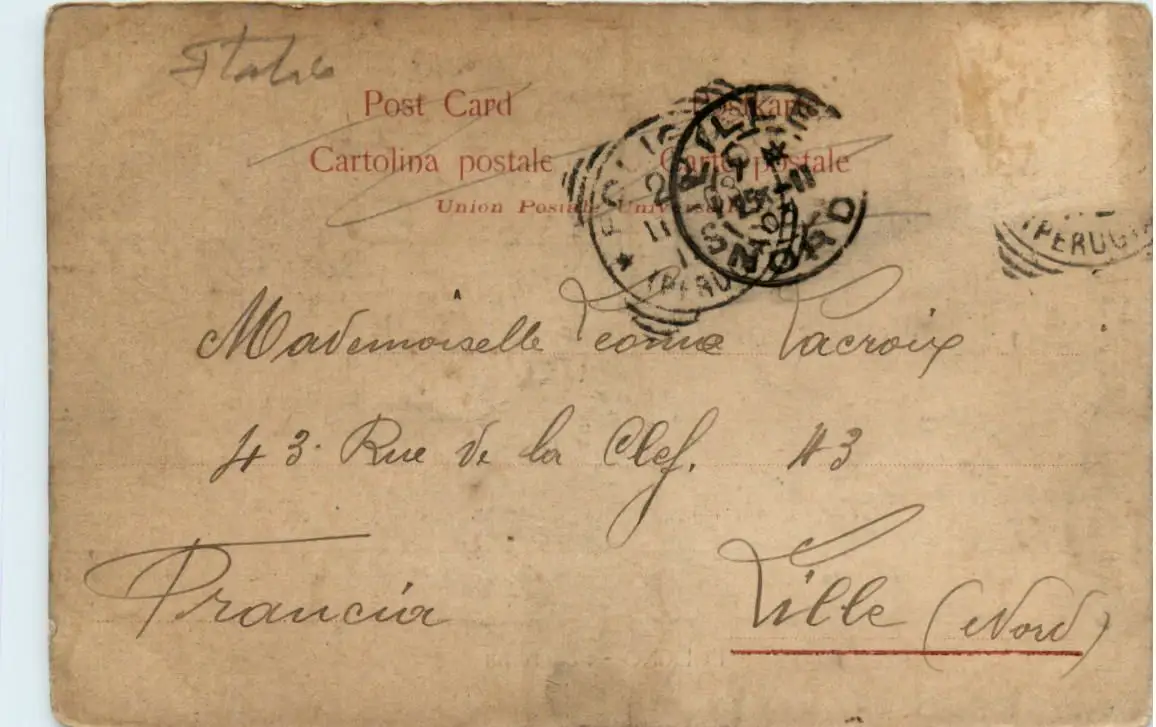 Italie
Post Card Postkarte
Cartolina postale Carte postale
Union Postale Universelle
FOLIGNO
(PERUGIA)
LILLE
NORD
(PERUGIA)
Mademoiselle Leonie Lacroix
43. Rue de la Clef. 43
Francia Lille (Nord)